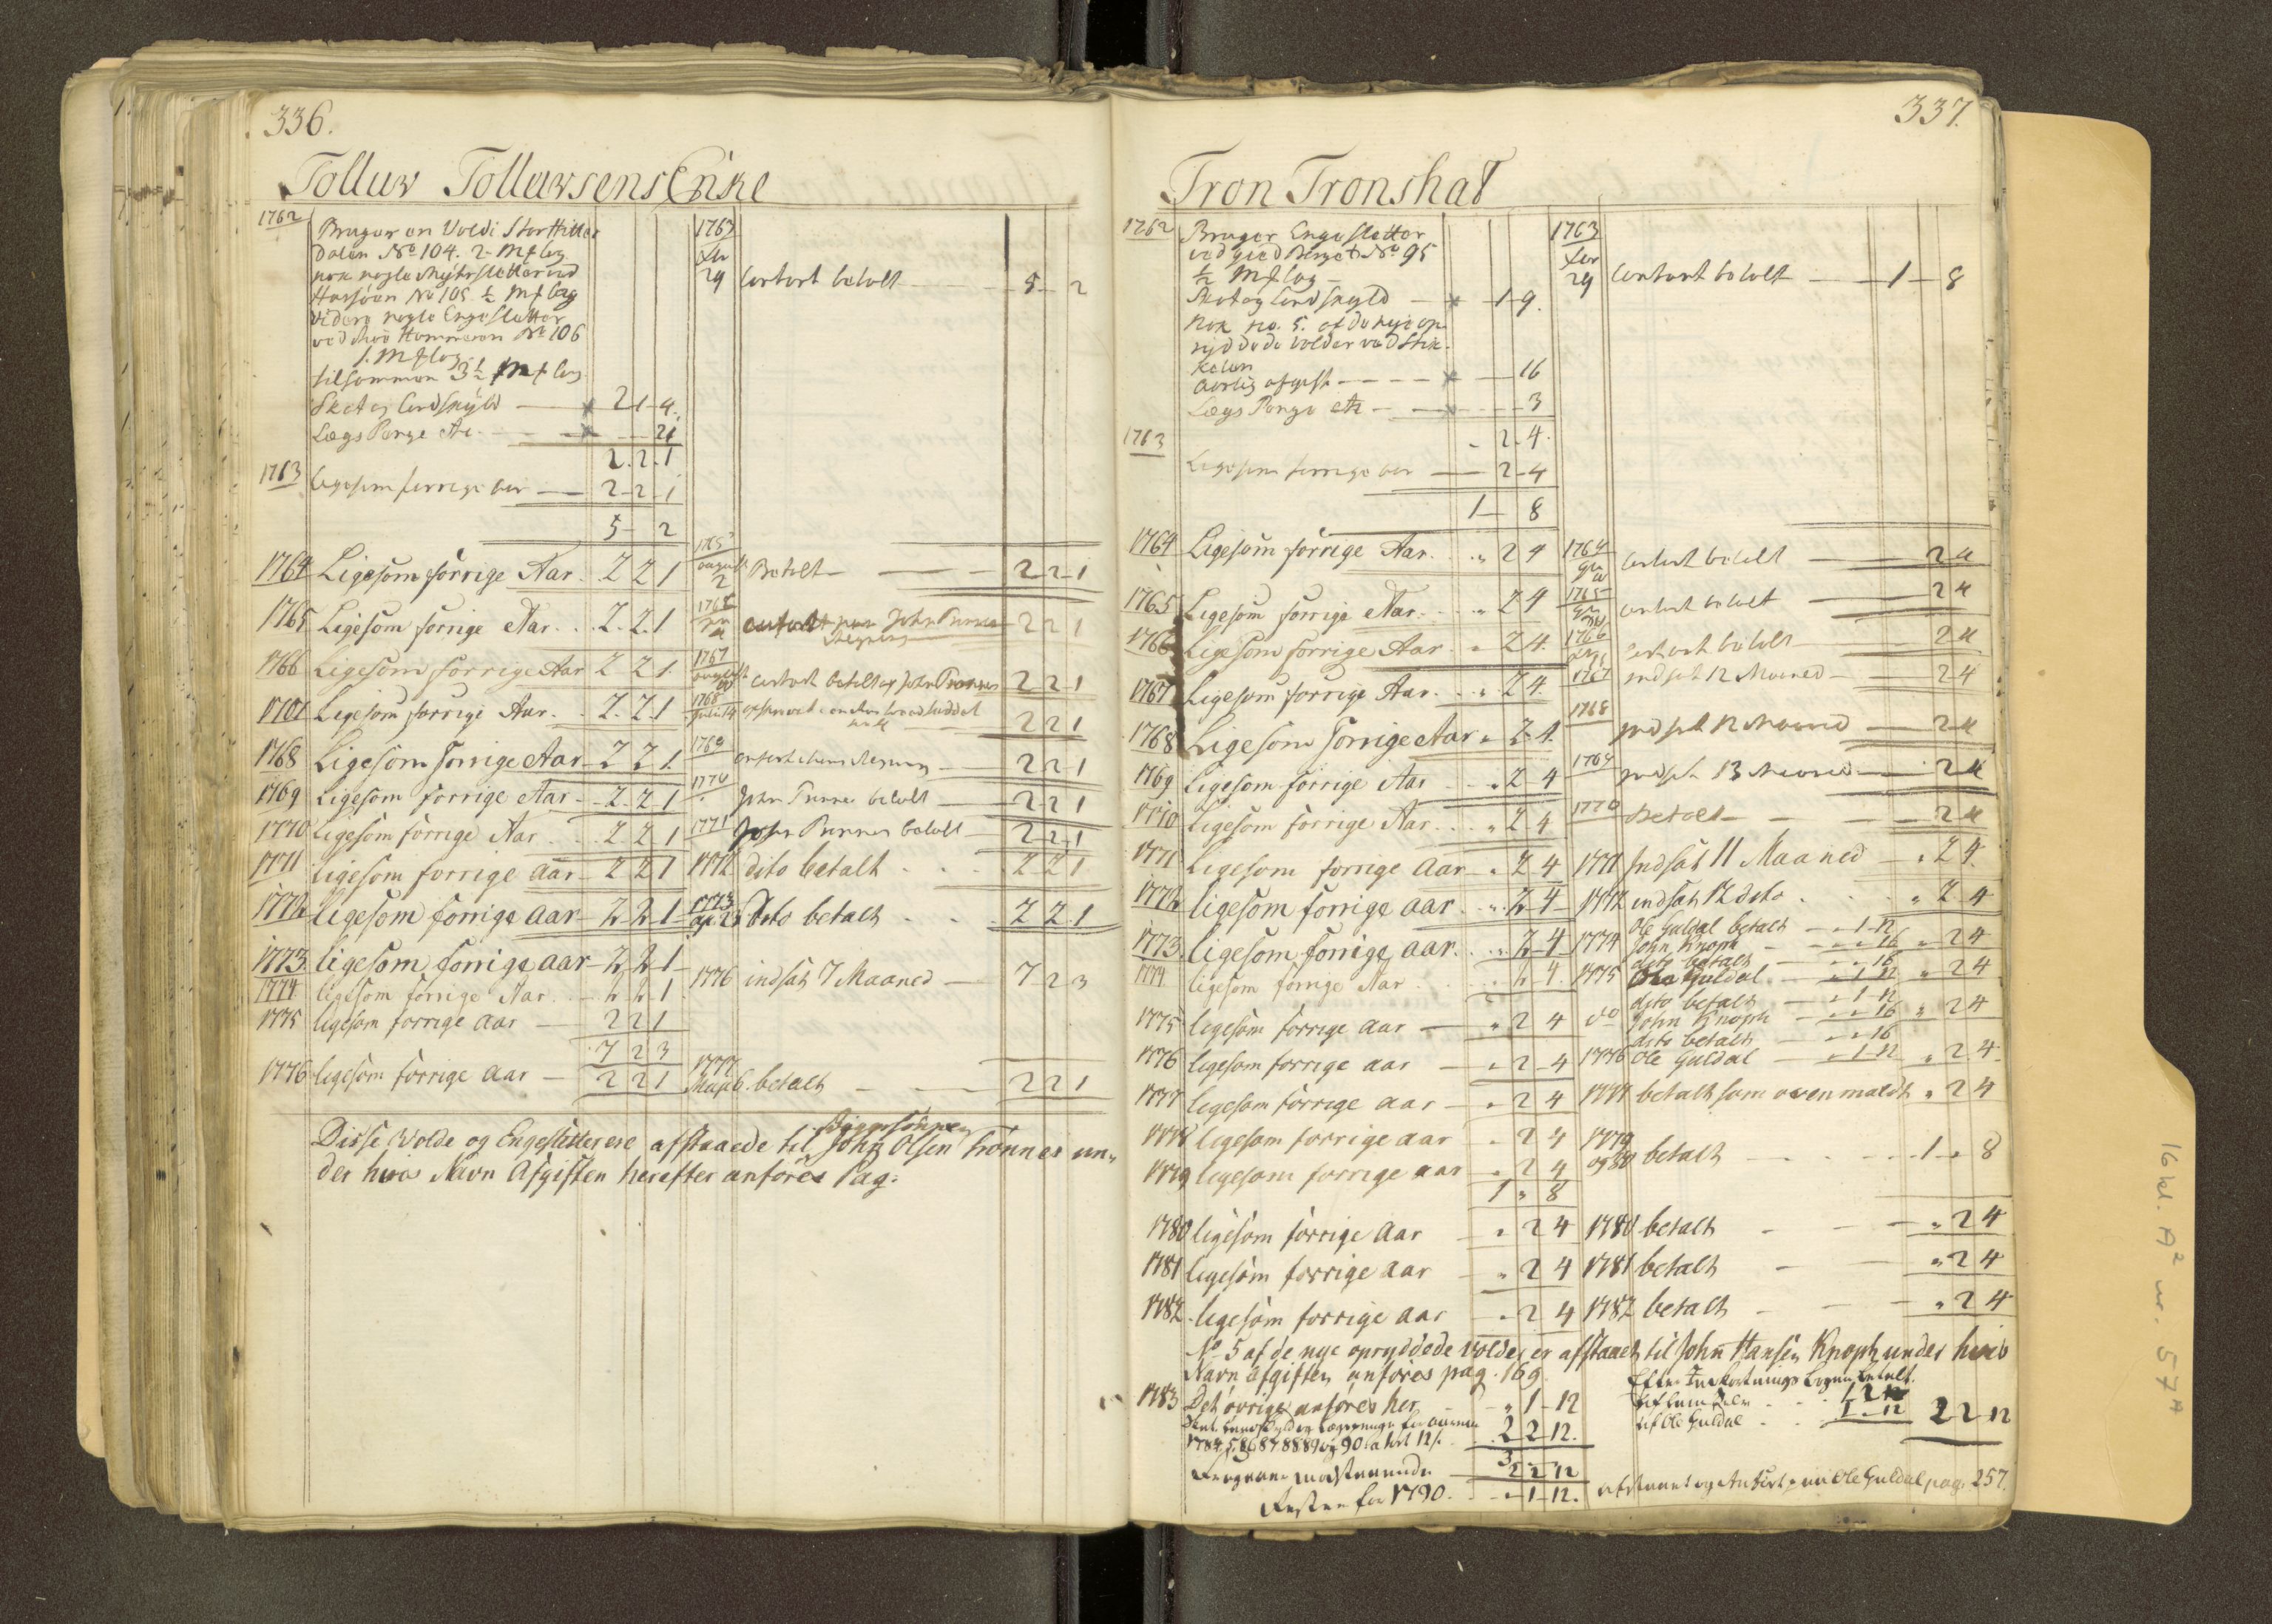 336.
Tolluv Tollevsens Enke
1762 Bruger en Vold i Stor Hitter
Dalen No 104. 2 M f log
nok nogle Myhrsletter ved
No 105 ½ M f log
videre nogle Engesletter
ved Hammeren No 106
1. M f log
tilsammen 3½ M f log
Skat og Landskyld — 2 1 4.
Lægs Penge Etc. — 21
2. 2. 1
1763 Ligesom forrige aar — 2 2 1
5 — 2
1764 Ligesom forrige Aar. 2 2 1
1765 Ligesom forrige Aar. . 2. 2. 1
1766 Ligesom forrige Aar 2 2 1.
1767 Ligesom forrige Aar. . 2. 2. 1
1768 Ligesom forrige Aar 2 2 1.
1769 Ligesom forrige Aar 2. 2 1
1770 Ligesom forrige Aar . . 2 2 1
1771 ligesom forrige aar 2 2 1
1772 ligesom forrige aar 2 2 1
1773. ligesom forrige aar 2 2 1
1774 ligesom forrige Aar . 2 2 1
1775 ligesom forrige aar — 2 2 1
7 2 3
1776 ligesom forrige aar — 2 2 1
1763
29 Contant betalt — 5 — 2
1765
august
2 Betalt — 2 2 1
John
Regning 2 2 1
1767
august
contant betalt af John 2 2 1
1768
2 2 1
1769 Regning — 2 2 1
1770 John betalt — 2 2 1
1771 John betalt — 2 2 1
1772 dito betalt . . . 2 2 1
1773 dito betalt . . . 2 2 1
1776 indsat 7 Maaned — 7 2 3
1777
Maj 6. betalt — 2 2 1
Disse Volde og Engesletter ere afstaaede til John Olsen Trønnes un-
der hvis Navn Afgiften herefter anføres Pag:
337.
Tron Tronshat
1762 Bruger Engesletter
ved No 95
½ M f log —
Skat og Landskyld — 1 9.
nok no. 5. af de nye op-
ryddede Volder ved
Aarlig afgift — 16
Lægs Penge etc — 3
„ 2. 4.
1763
Ligesom forrige aar — 2 4
1 — 8
1764 Ligesom forrige Aar. . „ 2 4
1765 Ligesom forrige Aar. . „ 2 4
1766 Ligesom forrige Aar . „ 2 4.
1767 Ligesom forrige Aar. . „ 2 4.
1768 Ligesom forrige Aar „ 2. 4.
1769 Ligesom forrige Aar . „ 2 4
1770 Ligesom forrige Aar. . „ 2 4
1771 Ligesom forrige aar „ 2 4
1772 ligesom forrige aar . „ 2 4
1773. ligesom forrige aar. . „ 2 4
1774 ligesom forrige Aar . . 2 4.
1775 ligesom forrige aar — „ 2 4
1776 ligesom forrige aar — „ 2 4
1777 ligesom forrige aar — „ 2 4
1778 ligesom forrige aar „ 2 4
1779 ligesom forrige aar „ 2 4
1 „ 8
1780 ligesom forrige aar — „ 2 4
1781 ligesom forrige aar — „ 2 4
1782. ligesom forrige aar — „ 2 4
1763
29 Contant betalt — 1 — 8
1764
contant betalt — 2 4
1765
contant betalt — 2 4
1766
contant betalt — 2 4
1767 indsat 12 Maaned — 2 4
1768
indsat 12 Maaned — 2 4
1769 indsat 13 Maaned — 2 4
1770 betalt — 2 4
1771 Indsat 11 Maaned — „ 2 4.
1772 indsat 12 dito . . . „ 2 4
Ole Guldal betalt — „ 1 12
1774 John Knoph — „ „ 16 „ 2 4
dito betalt — „ „ 16
1775 Ole Guldal — „ 1 12 „ 2 4
dito betalt — „ 1 12
do John Knoph — „ „ 16 „ 2 4
dito betalt — „ „ 16
1776 Ole Guldal — „ 1 12 „ 2 4
1777 betalt som oven meldt „ 2 4
1779
og 80 betalt — . . . 1 „ 8
1780 betalt — „ 2 4
1781 betalt — „ 2 4
1782 betalt — „ 2 4
No 5 af de nye opryddede Volder er afstaaet til John Hansen Knoph under hvis
Navn afgiften anføres pag. 169.
1783 Det øvrige anføres her. „ 1 12
1784, 5, 86 87 88 89 og 90 12 . 2 2 12.
3 2 2 12
Resten for 1790. . „ 1 12.
Efter betalt.
1 2 12
Ole Guldal . . 1 „ 12 2 2 12
afstaaet og Anført paa Ole Guldal pag. 257.
16 kl. A² nr. 57 A